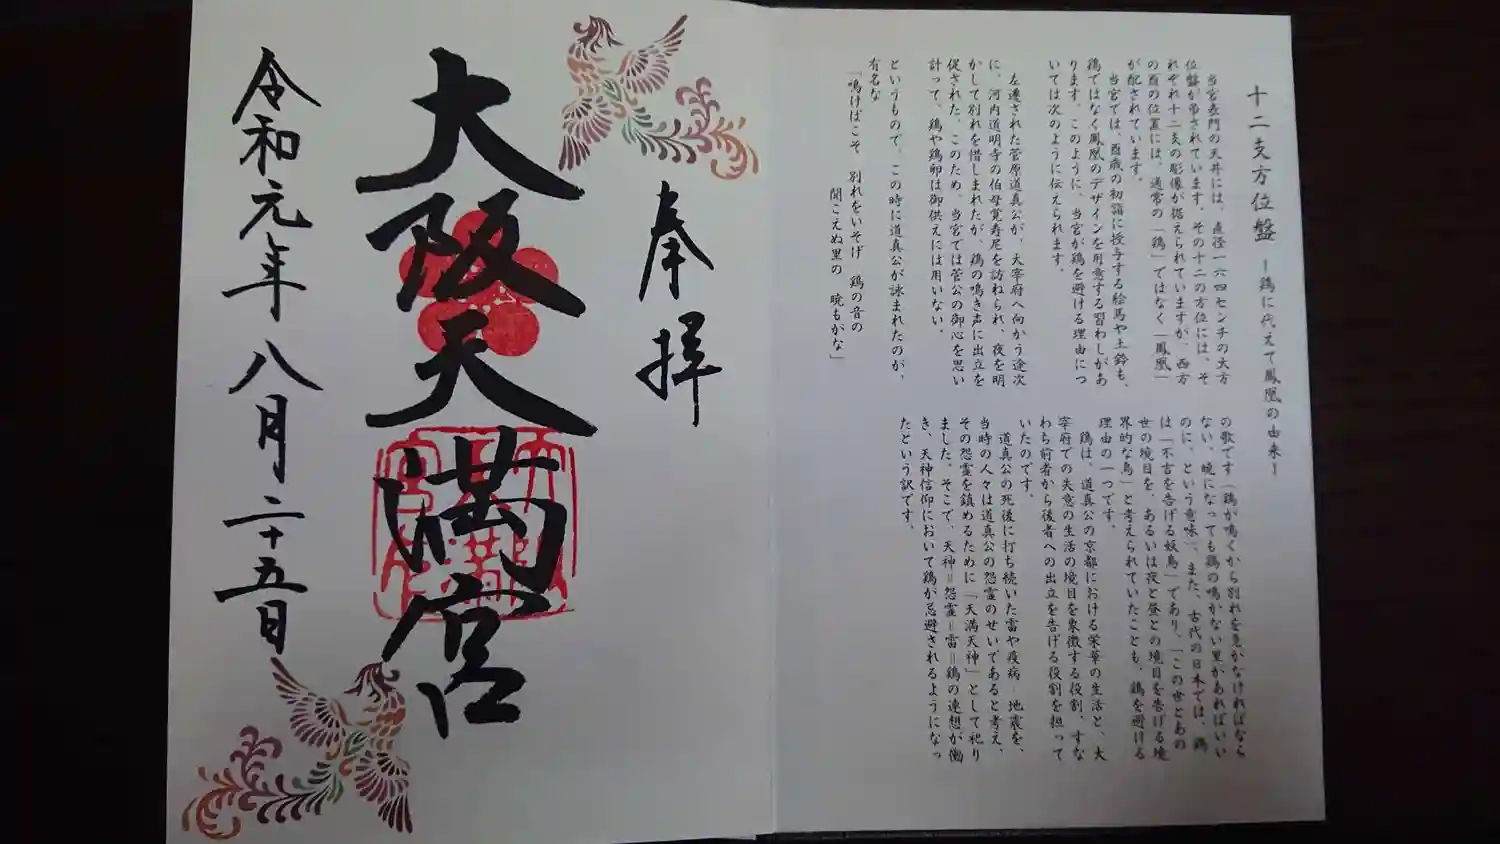 十二支方位盤 ー鶏に代えて鳳凰の由来ー
当宮表門の天井には、直径一六四センチの大方
位盤が吊されています。その十二の方位には、そ
れぞれ十二支の彫像が据えられていますが、西方
の酉の位置には、通常の「鶏」ではなく「鳳凰」
が配されています。
当宮では、酉歳の初詣に授与する絵馬や土鈴も、
鶏ではなく鳳凰のデザインを用意する習わしがあ
ります。このように、当宮が鶏を避ける理由につ
いては次のように伝えられます。
左遷された菅原道真公が、大宰府へ向かう途次
に、河内道明寺の伯母覚寿尼を訪ねられ、夜を明
かして別れを惜しまれたが、鶏の鳴き声に出立を
促された。このため、当宮では菅公の御心を思い
計って、鶏や鶏卵は御供えには用いない。
というもので、この時に道真公が詠まれたのが、
有名な
「鳴けばこそ 別れをいそげ 鶏の音の
聞こえぬ里の 暁もがな」
の歌です（鶏が鳴くから別れを急がなければなら
ない、暁になっても鶏の鳴かない里があればいい
のに、という意味）。また、古代の日本では、鶏
は「不吉を告げる妖鳥」であり、「この世とあの
世の境目を、あるいは夜と昼との境目を告げる境
界的な鳥」と考えられていたことも、鶏を避ける
理由の一つです。
鶏は、道真公の京都における栄華の生活と、大
宰府での失意の生活の境目を象徴する役割、すな
わち前者から後者への出立を告げる役割を担って
いたのです。
道真公の死後に打ち続いた雷や疫病・地震を、
当時の人々は道真公の怨霊のせいであると考え、
その怨霊を鎮めるために「天満天神」として祀り
ました。そこで、天神＝怨霊＝雷＝鶏の連想が働
き、天神信仰において鶏が忌避されるようになっ
たという訳です。
奉拝
大阪天満宮
令和元年八月二十五日